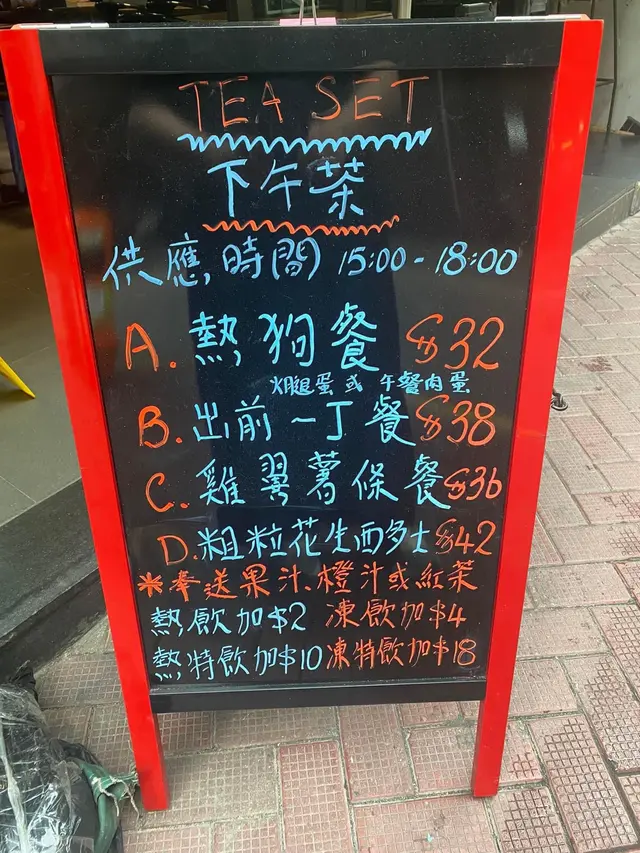 TEA SET
下午茶
供應時間 15:00 - 18:00
A. 熱狗餐 $32
火腿蛋或午餐肉蛋
B. 出前一丁餐 $38
C. 雞翼薯條餐 $36
D. 粗粒花生西多士 $42
*奉送果汁.橙汁或紅茶
熱飲加$2 凍飲加$4
熱特飲加$10 凍特飲加$18